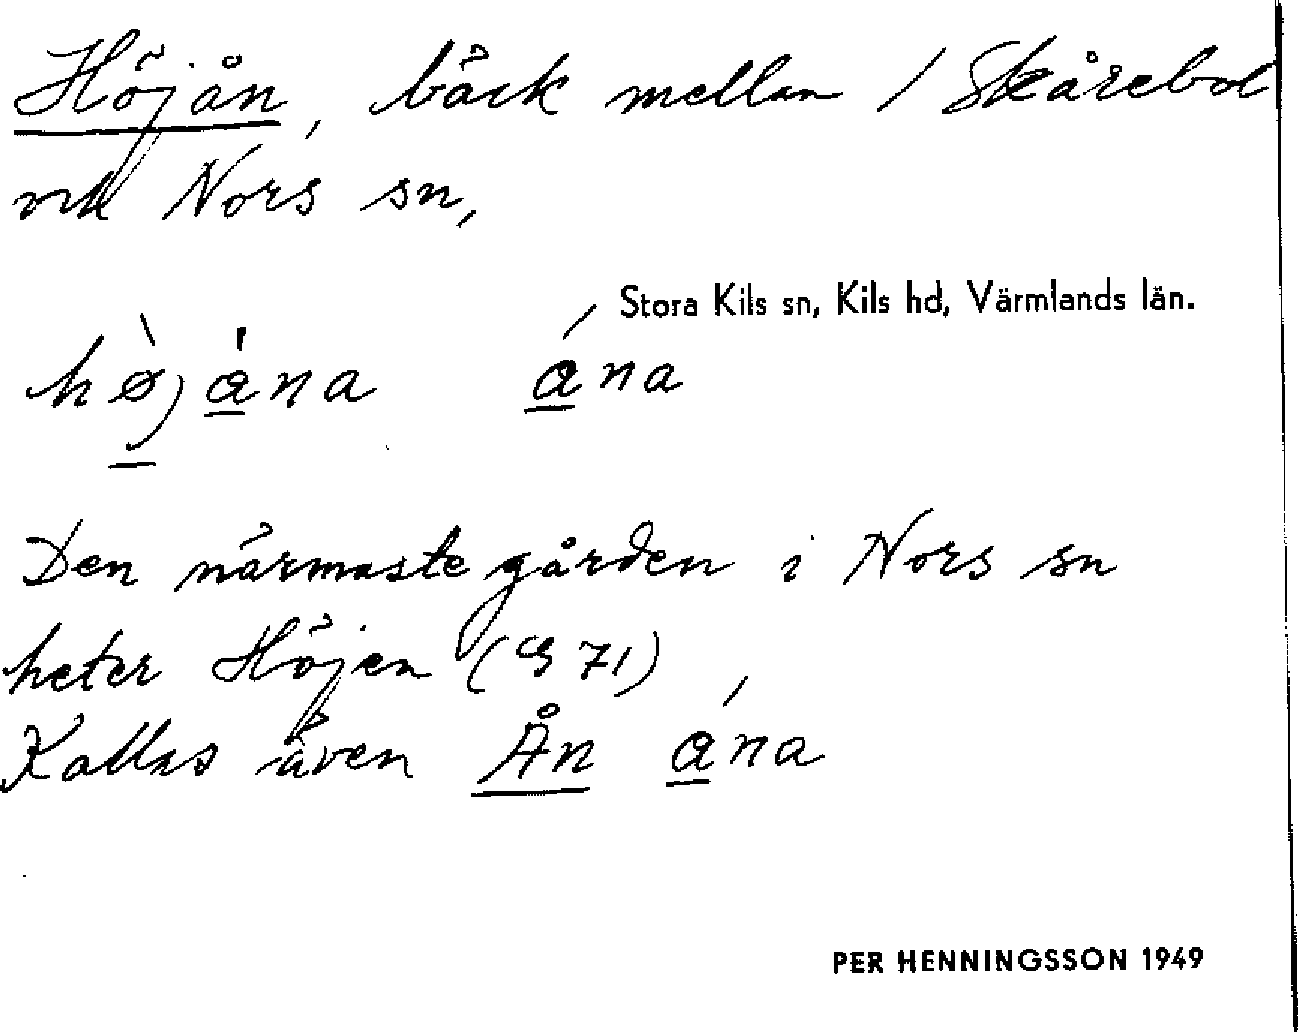 Höjån, bäck mellan / Skårebol
och Nors sn,
Stora Kils sn, Kils hd, Värmlands län.
hø̀jǻna ána
Den närmaste gården i Nors sn
heter Höjen (S 71)
Kallas även Ån ána
PER HENNINGSSON 1949